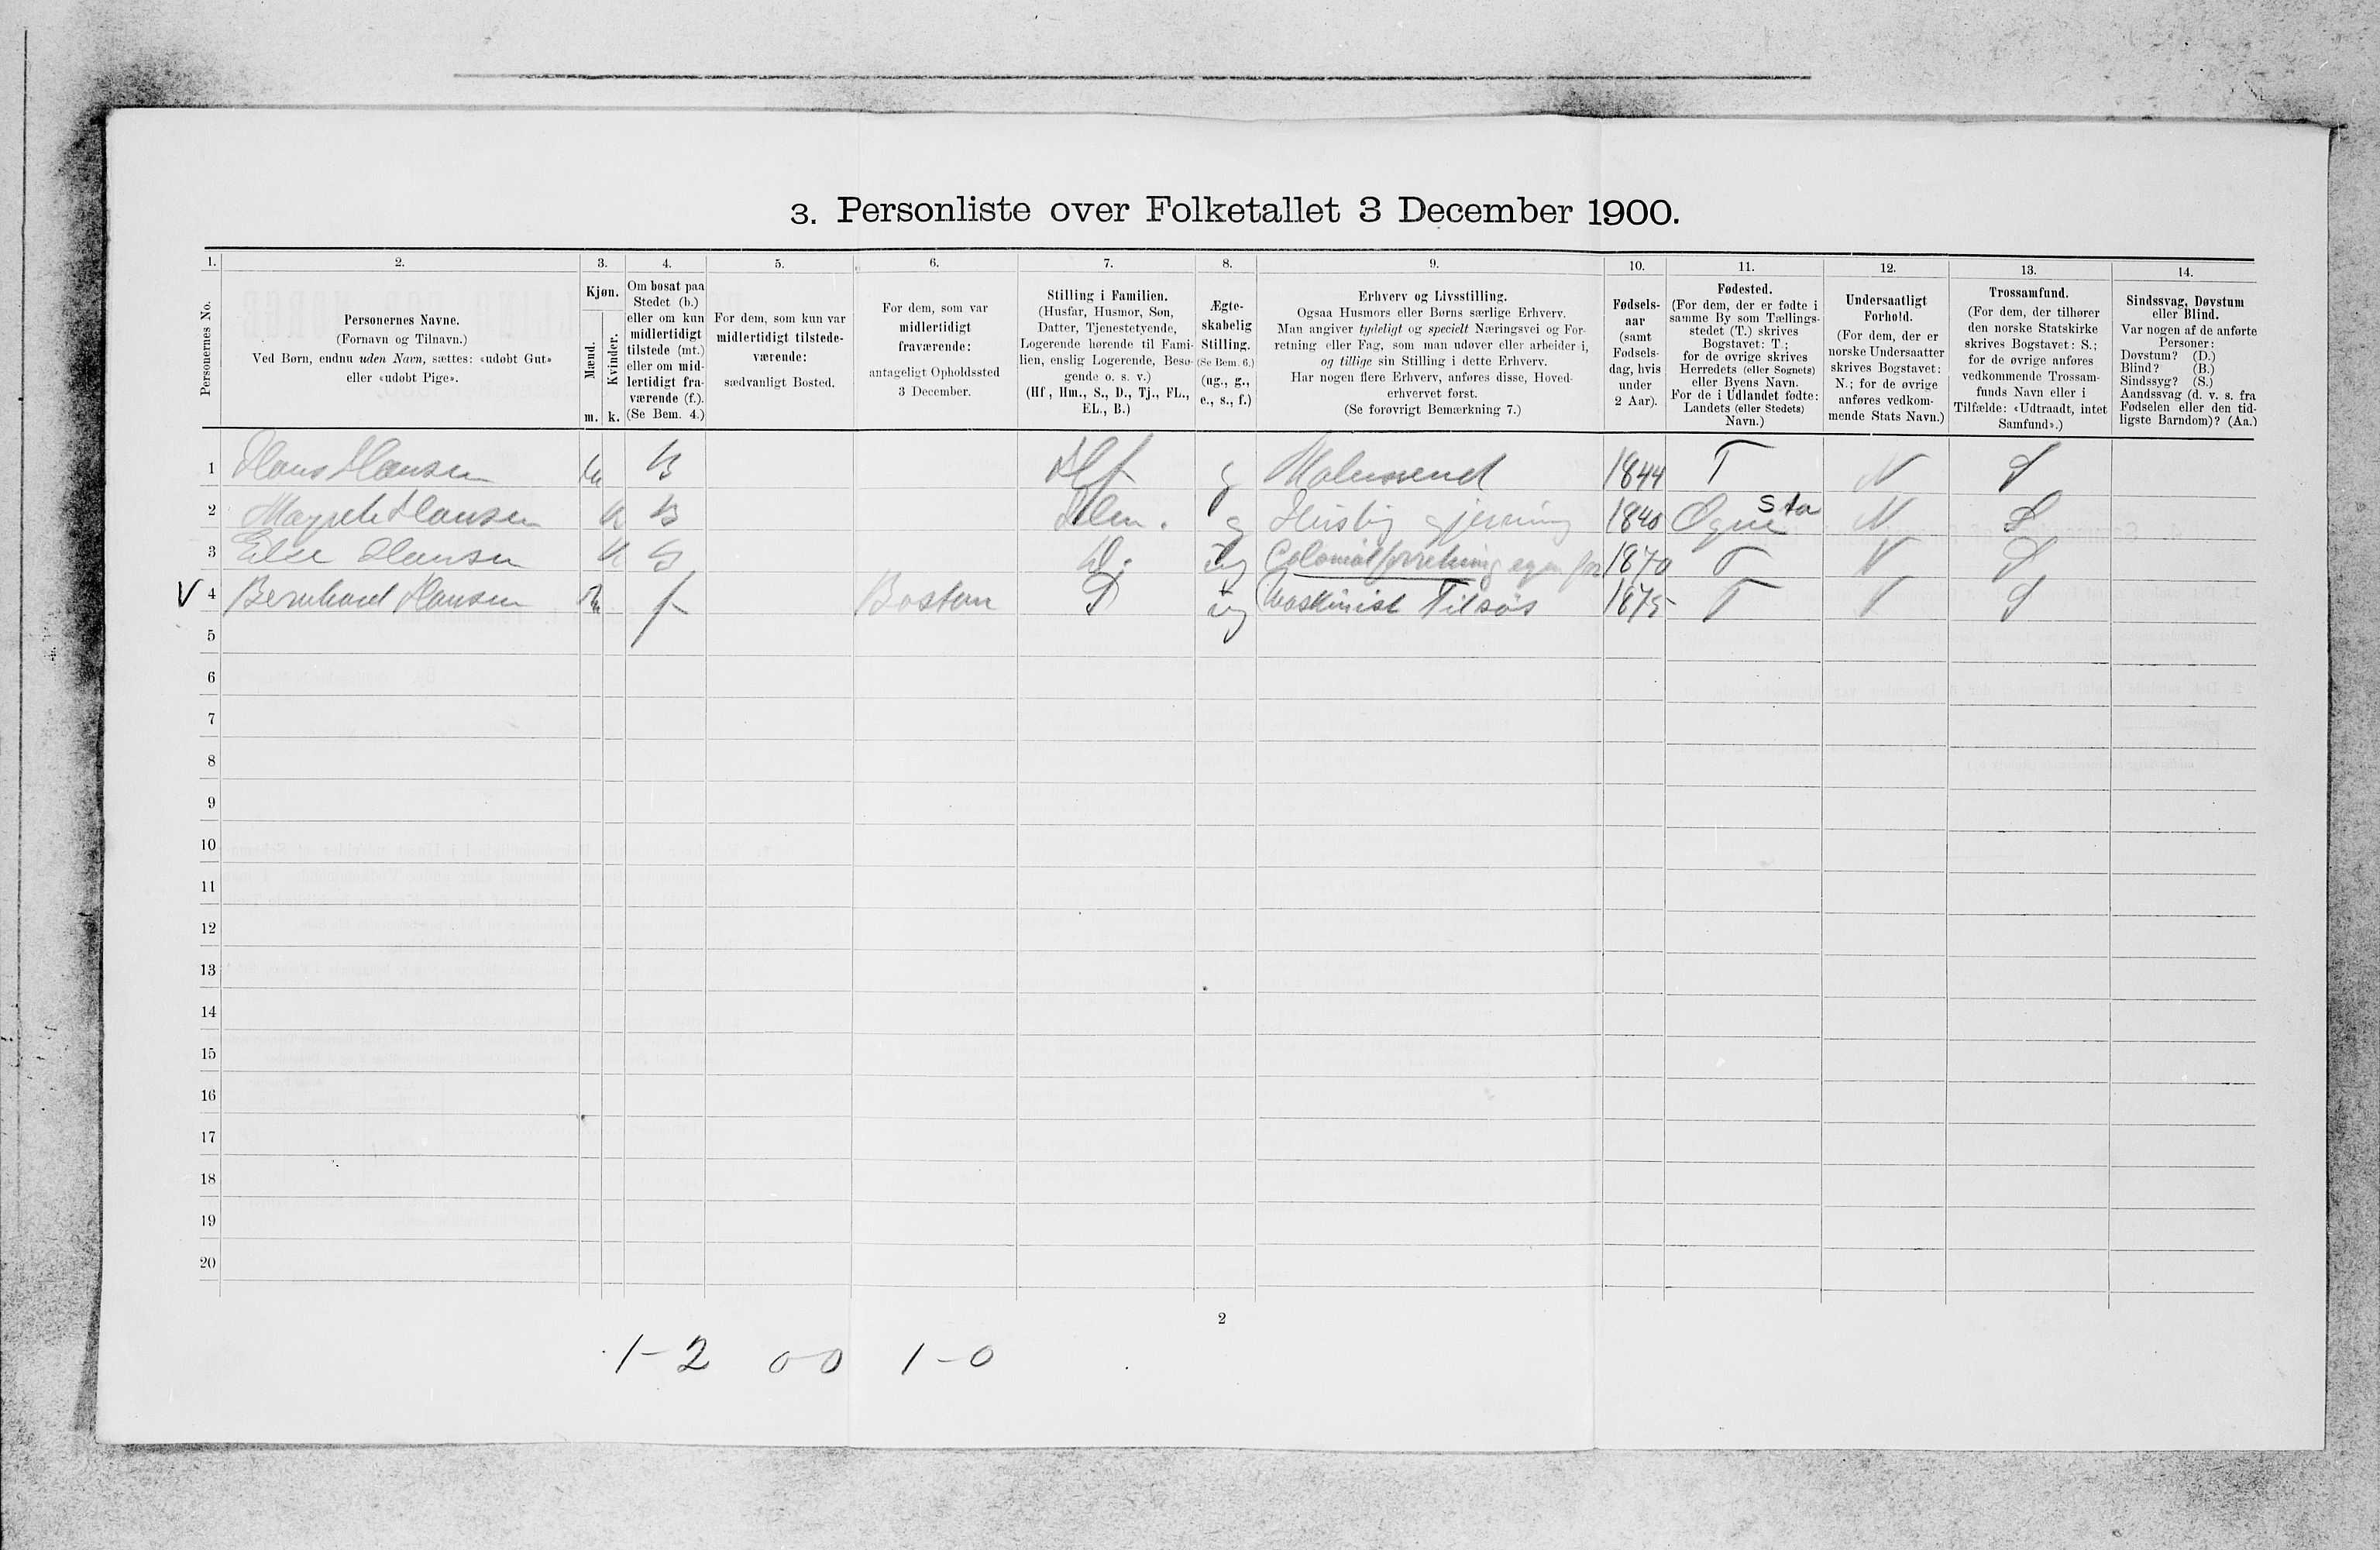 3. Personliste over Folketallet 3 December 1900.
1. 2. 3. 4. 5. 6. 7. 8. 9. 10. 11. 12. 13. 14.
Personernes No.
Personernes Navne.
(Fornavn og Tilnavn.)
Ved Børn, endnu uden Navn, sættes: «udøbt Gut»
eller «udøbt Pige».
Kjøn.
Mænd.
Kvinder.
m. k.
Om bosat paa
Stedet (b.)
eller om kun
midlertidigt
tilstede (mt.)
eller om mid-
lertidigt fra-
værende (f.).
(Se Bem. 4.)
For dem, som kun var
midlertidigt tilstede-
værende:
sædvanligt Bosted.
For dem, som var
midlertidigt
fraværende:
antageligt Opholdssted
3 December.
Stilling i Familien.
(Husfar, Husmor, Søn,
Datter, Tjenestetyende,
Logerende hørende til Fami-
lien, enslig Logerende, Besø-
gende o. s. v.)
(Hf., Hm., S., D., Tj., FL.,
EL., B.)
Ægte-
skabelig
Stilling.
(Se Bem. 6.)
(ug., g.,
e., s., f.)
Erhverv og Livsstilling.
Ogsaa Husmors eller Børns særlige Erhverv.
Man angiver tydeligt og specielt Næringsvei og For-
retning eller Fag, som man udøver eller arbeider i,
og tillige sin Stilling i dette Erhverv.
Har nogen flere Erhverv, anføres disse, Hoved-
erhvervet først.
(Se forøvrigt Bemærkning 7.)
Fødsels-
aar
(samt
Fødsels-
dag, hvis
under
2 Aar).
Fødested.
(For dem, der er fødte i
samme By som Tællings-
stedet (T.) skrives
Bogstavet: T;
for de øvrige skrives
Herredets (eller Sognets)
eller Byens Navn.
For de i Udlandet fødte:
Landets (eller Stedets)
Navn.)
Undersaatligt
Forhold.
(For dem, der er
norske Undersaatter
skrives Bogstavet:
N.; for de øvrige
anføres vedkom-
mende Stats Navn.)
Trossamfund.
(For dem, der tilhører
den norske Statskirke
skrives Bogstavet: S.;
for de øvrige anføres
vedkommende Trossam-
funds Navn eller i
Tilfælde: «Udtraadt, intet
Samfund».)
Sindssvag, Døvstum
eller Blind.
Var nogen af de anførte
Personer:
Døvstum? (D.)
Blind? (B.)
Sindssyg? (S.)
Aandssvag (d. v. s. fra
Fødselen eller den tid-
ligste Barndom)? (Aa.)
1 Hans Hansen m B Hf g 1844 T N S
2 Hansen k B Hm. g Huslig gjerning 1840 Ogne Sta N S
3 Else Hansen k B D. ug Colonialforretning egen for 1870 T N S
V 4 Bernhard Hansen m f Boston S ug Maskinist Tilsøs 1875 T N S
5
6
7
8
9
10
11
12
13
14
15
16
17
18
19
20
2
1-2 0-0 1-0